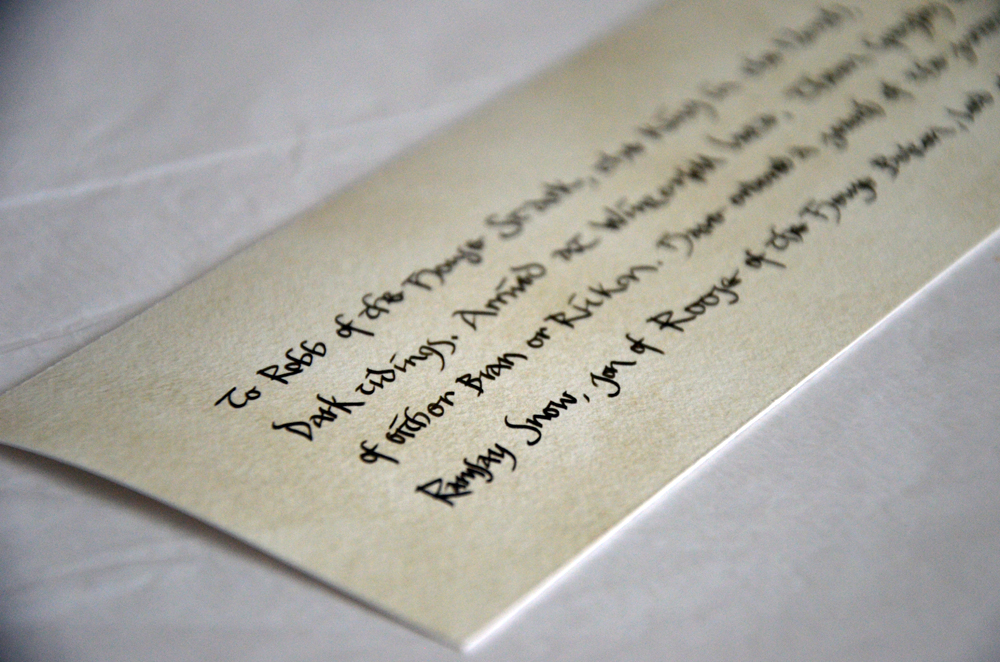 To Robb of the House Stark, the King in the North,
Dark tidings. Arrived at Winterfell late. Theon Greyjoy
of either Bran or Rickon. Dave of the
Ramsay Snow, son of Roose of the House Bolton, has